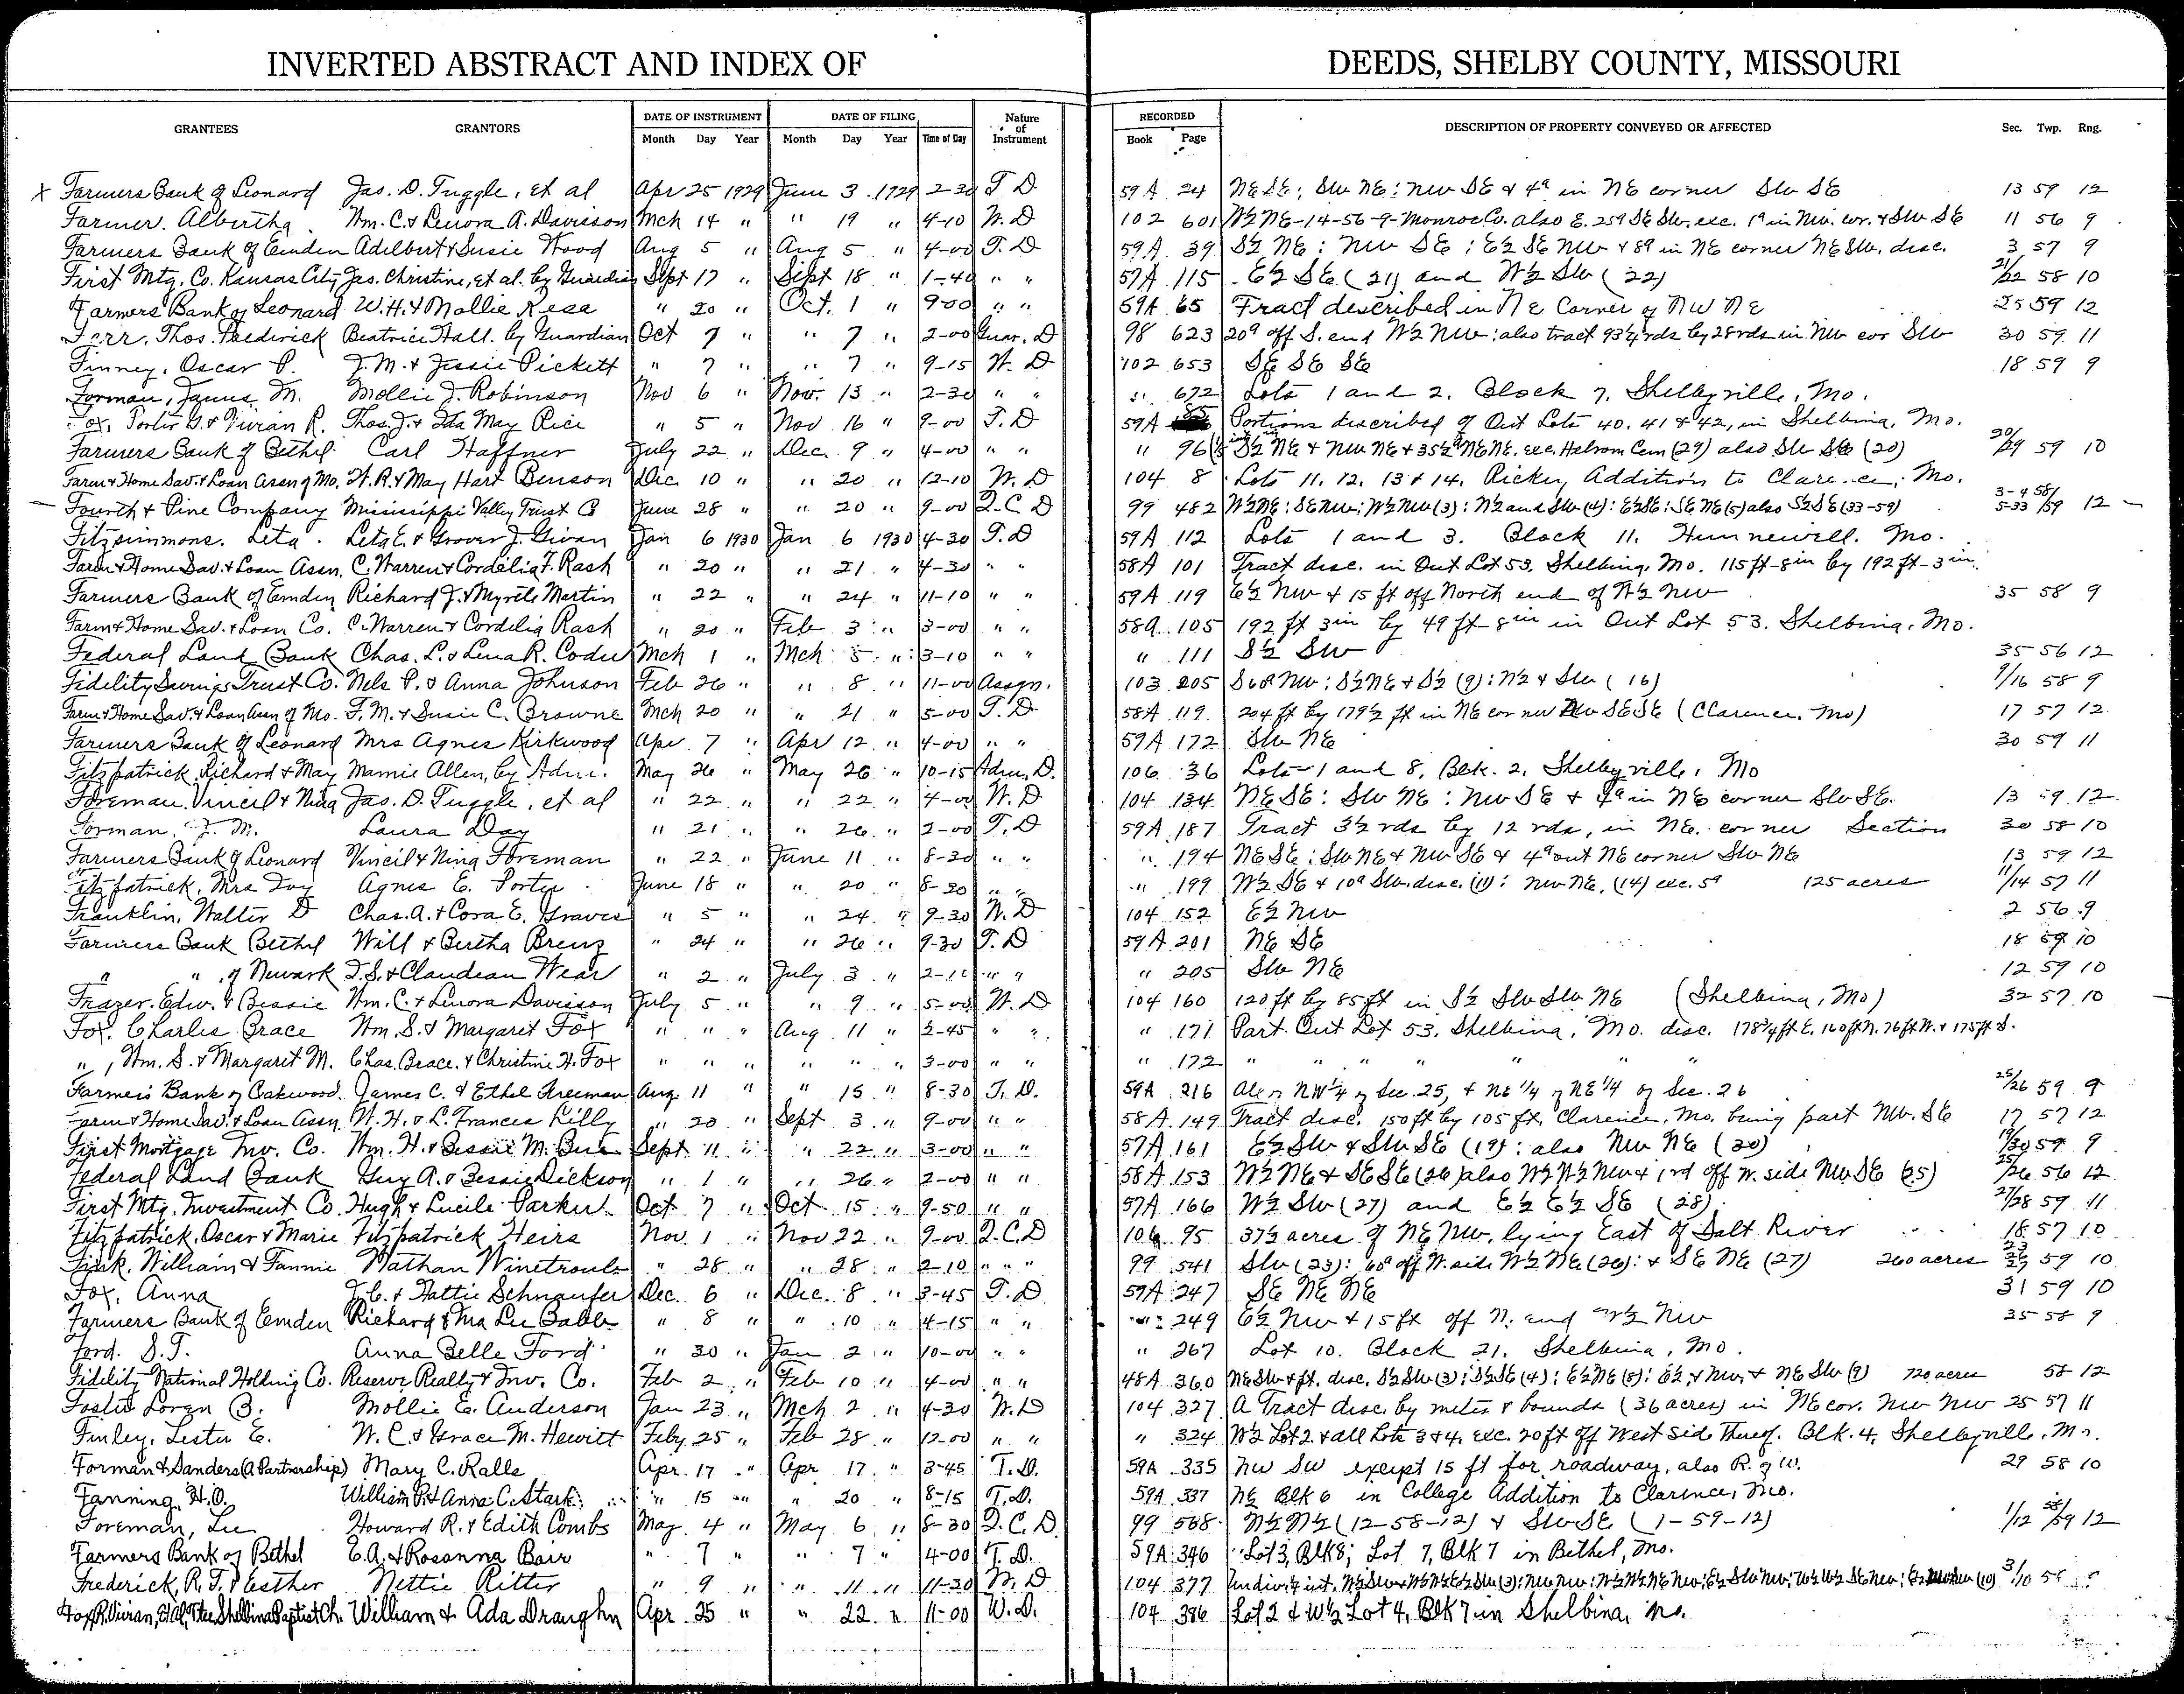 INVERTED ABSTRACT AND INDEX OF DEEDS, SHELBY COUNTY, MISSOURI
GRANTEES GRANTORS DATE OF INSTRUMENT Month Day Year DATE OF FILING Month Day Year Time of Day Nature of Instrument RECORDED Book Page DESCRIPTION OF PROPERTY CONVEYED OR AFFECTED Sec. Twp. Rng.
x Farmers Bank of Leonard Jas. D. Tuggle, et al Apr 25 1929 June 3 1929 2-30 T D 59A 24 NE SE; SW NE: NW SE & 4a in NE corner SW SE 13 59 12
Farmer, Albertha Wm. C. & Lenora A. Davisson Mch 14 " " 19 " 4-10 W. D 102 601 W½ NE-14-56-9-Monroe Co. also E. 25a SE SW. exc. 1a in NW. cor. & SW SE 11 56 9
Farmers Bank of Emden Adelbert & Susie Wood Aug 5 " Aug 5 " 4-00 T. D 59A 39 S½ NE: NW SE: E½ SE NW & 8a in NE corner NE SW. disc. 3 57 9
First Mtg. Co. Kansas City Jas. Christine, et al. by Guardian Sept 17 " Sept 18 " 1-40 " " 57A 115 E½ SE (21) and W½ SW (22) 21/22 58 10
Farmers Bank of Leonard W. H. & Mollie Resa " 20 " Oct. 1 " 9-00 " " 59A 65 Tract described in NE Corner of NW NE 25 59 12
Farr, Thos. Frederick Beatrice Hall. by Guardian Oct 7 " " 7 " 2-00 Guar. D 98 623 20a off S. end W½ NW: also tract 93¼ rds by 28 rds in NW cor SW 30 59 11
Finney, Oscar P. J. M. & Jessie Pickett " 7 " " 7 " 9-15 W. D 102 653 SE SE SE 18 59 9
Forman, James M. Mollie J. Robinson Nov 6 " Nov. 13 " 2-30 " " " 672 Lots 1 and 2. Block 7. Shelbyville, Mo.
Fox, Porter G. & Vivian R. Thos. J. & Ida May Rice " 5 " Nov 16 " 9-00 T. D 59A 85 Portions described of Out Lots 40. 41 & 42, in Shelbina, Mo.
Farmers Bank of Bethel Carl Haffner July 22 " Dec. 9 " 4-00 " " " 96 S½ NE & NW NE & 35½a NE NE. exc. Hebron Cem (29) also SW SE (20) 20/29 59 10
Farm & Home Sav. & Loan Assn of Mo. H. R. & May Hart Benson Dec. 10 " " 20 " 12-10 W. D 104 8 Lots 11. 12. 13 & 14. Rickey Addition to Clarence, Mo.
Fourth & Pine Company Mississippi Valley Trust Co June 28 " " 20 " 9-00 Q. C D 99 482 W½ NE: SE NW; W½ NW (3): N½ and SW (4): E½ SE: SE NE (5) also S½ SE (33-59) 3-4 58/ 5-33 /59 12
Fitzsimmons, Leta Leta E. & Grover J. Givan Jan 6 1930 Jan 6 1930 4-30 T. D 59A 112 Lots 1 and 3. Block 11. Hunnewell. Mo.
Farm & Home Sav. & Loan Assn. C. Warren & Cordelia F. Rash " 20 " " 21 " 4-30 " " 58A 101 Tract disc. in Out Lot 53. Shelbina, Mo. 115 ft-8 in by 192 ft-3 in.
Farmers Bank of Emden Richard J. & Myrtle Martin " 22 " " 24 " 11-10 " " 59A 119 E½ NW & 15 ft off North end of W½ NW 35 58 9
Farm & Home Sav. & Loan Co. C. Warren & Cordelia Rash " 20 " Feb 3 " 3-00 " " 58A 105 192 ft 3 in by 49 ft-8 in in Out Lot 53. Shelbina, Mo.
Federal Land Bank Chas. L. & Lena R. Coder Mch 1 " Mch 5 " 3-10 " " " 111 S½ SW 35 56 12
Fidelity Savings Trust Co. Nels P. & Anna Johnson Feb 26 " " 8 " 11-00 Assgn. 103 205 S 60a NW: S½ NE & S½ (9): N½ & SW (16) 9/16 58 9
Farm & Home Sav. & Loan Assn of Mo. F. M. & Susie C. Browne Mch 20 " " 21 " 5-00 T. D 58A 119 204 ft by 179½ ft in NE corner NW SE SE (Clarence, Mo) 17 57 12
Farmers Bank of Leonard Mrs Agnes Kirkwood Apr 7 " Apr 12 " 4-00 " " 59A 172 SW NE 30 59 11
Fitzpatrick, Richard & May Mamie Allen, by Adm. May 26 " May 26 " 10-15 Adm. D. 106 36 Lots 1 and 8, Blk. 2, Shelbyville, Mo
Foreman, Vincil & Nina Jas. D. Tuggle, et al " 22 " " 22 " 4-00 W. D 104 134 NE SE: SW NE: NW SE & 4a in NE corner SW SE. 13 59 12
Forman, J. M. Laura Day " 21 " " 26 " 2-00 T. D 59A 187 Tract 3½ rds by 12 rds, in NE. corner Section 30 58 10
Farmers Bank of Leonard Vincil & Nina Foreman " 22 " June 11 " 8-30 " " " 194 NE SE: SW NE & NW SE & 4a out NE corner SW NE 13 59 12
Fitzpatrick, Mrs Ivy Agnes E. Porter June 18 " " 20 " 8-30 " " " 199 W½ SE & 10a SW. disc. (11): NW NE, (14) exc. 5a 125 acres 11/14 57 11
Franklin, Walter D Chas. A. & Cora E. Graves " 5 " " 24 " 9-30 W. D 104 152 E½ NW 2 56 9
Farmers Bank Bethel Will & Bertha Brenz " 24 " " 26 " 9-30 T. D 59A 201 NE SE 18 59 10
" " of Newark T. S. & Claudean Wear " 2 " July 3 " 2-10 " " " 205 SW NE 12 59 10
Frazer, Edw. & Bessie Wm. C. & Lenora Davisson July 5 " " 9 " 5-00 W. D 104 160 120 ft by 85 ft in S½ SW SW NE (Shelbina, Mo) 32 57 10
Fox, Charles Grace Wm. S. & Margaret Fox " " " Aug 11 " 2-45 " " " 171 Part Out Lot 53, Shelbina, Mo. disc. 178¾ ft E. 160 ft N. 76 ft W. & 175 ft S.
", Wm. S. & Margaret M. Chas. Grace & Christine H. Fox " " " " " " 3-00 " " " 172 " " " " " " "
Farmers Bank of Oakwood. James C. & Ethel Freeman Aug. 11 " " 15 " 8-30 T. D. 59A 216 All of NW¼ of Sec. 25, & NE ¼ of NE ¼ of Sec. 26 25/26 59 9
Farm & Home Sav. & Loan Assn. W. H. & L. Frances Lilly " 20 " Sept 3 " 9-00 " " 58A 149 Tract disc. 150 ft by 105 ft, Clarence, Mo. being part NW. SE 17 57 12
First Mortgage Inv. Co. Wm. H. & Bessie M. Sept. 11 " " 22 " 3-00 " " 57A 161 E½ SW & SW SE (19): also NW NE (30) 19/30 59 9
Federal Land Bank Guy A. & Bessie Dickson " 1 " " 26 " 2-00 " " 58A 153 W½ NE & SE SE (26) also W½ W½ NW & 1 rd off W. side NW SE (25) 25/26 56 12
First Mtg. Investment Co. Hugh & Lucile Parker Oct 7 " Oct 15 " 9-50 " " 57A 166 W½ SW (27) and E½ E½ SE (28) 27/28 59 11
Fitzpatrick, Oscar & Marie Fitzpatrick Heirs Nov. 1 " Nov 22 " 9-00 Q. C. D 106 95 37½ acres of NE NW, lying East of Salt River 18 57 10
Fink, William & Fannie Nathan Winetroub " 28 " " 28 " 2-10 " " " 99 541 SW (23): 60a off W. side W½ NE (26): & SE NE (27) 260 acres 23 26 27 59 10
Fox, Anna J. C. & Hattie Schnaufer Dec. 6 " Dec. 8 " 3-45 T. D 59A 247 SE NE NE 31 59 10
Farmers Bank of Emden Richard & Ina Lee Babb " 8 " " 10 " 4-15 " " " 249 E½ NW & 15 ft off N. end W½ NW 35 58 9
Ford, S. T. Anna Belle Ford " 30 " Jan 2 " 10-00 " " " 267 Lot 10. Block 21. Shelbina, Mo.
Fidelity National Holding Co. Reserve Realty & Inv. Co. Feb 2 " Feb 10 " 4-00 " " 48A 360 NE SW & pt. disc. S½ SW (3): S½ SE (4): E½ NE (8): E½ & NW. & NE SW (9) 720 acres 58 12
Foster Loren B. Mollie E. Anderson Jan 23 " Mch 2 " 4-30 W. D 104 327 A Tract disc. by metes & bounds (36 acres) in NE cor. NW NW 25 57 11
Finley, Lester E. W. C. & Grace M. Hewitt Feby 25 " Feb 28 " 12-00 " " " 324 W½ Lot 2 & all Lots 3 & 4. exc. 20 ft off West side thereof. Blk. 4, Shelbyville, Mo.
Forman & Sanders (A Partnership) Mary C. Ralls Apr. 17 " Apr 17 " 3-45 T. D. 59A 335 NW SW except 15 ft for roadway, also R. of W. 29 58 10
Fanning, H. O. William P. & Anna C. Stark " 15 " " 20 " 8-15 T. D. 59A 337 N½ Blk 6 in College Addition to Clarence, Mo.
Foreman, Lee Howard R. & Edith Combs May 4 " May 6 " 8-30 Q. C. D 99 568 N½ N½ (12-58-12) & SW SE (1-59-12) 1/12 58/59 12
Farmers Bank of Bethel E. A. & Rosanna Bair " 7 " " 7 " 4-00 T. D. 59A 346 Lot 3, Blk 8; Lot 7, Blk 7 in Bethel, Mo.
Frederick, R. T. & Esther Nettie Ritter " 9 " " 11 " 11-30 W. D 104 377 Undiv. ½ int. W½ SW & W½ W½ E½ SW (3): NW NW: W½ W½ NE NW: E½ SW NW: W½ W½ SE NW: (10) 3/10 58
Fox, R. Vivian, Et Al, Tstee Shelbina Baptist Ch. William & Ada Draughn Apr 25 " " 22 " 11-00 W. D. 104 386 Lot 2 & W½ Lot 4, Blk 7 in Shelbina, Mo.